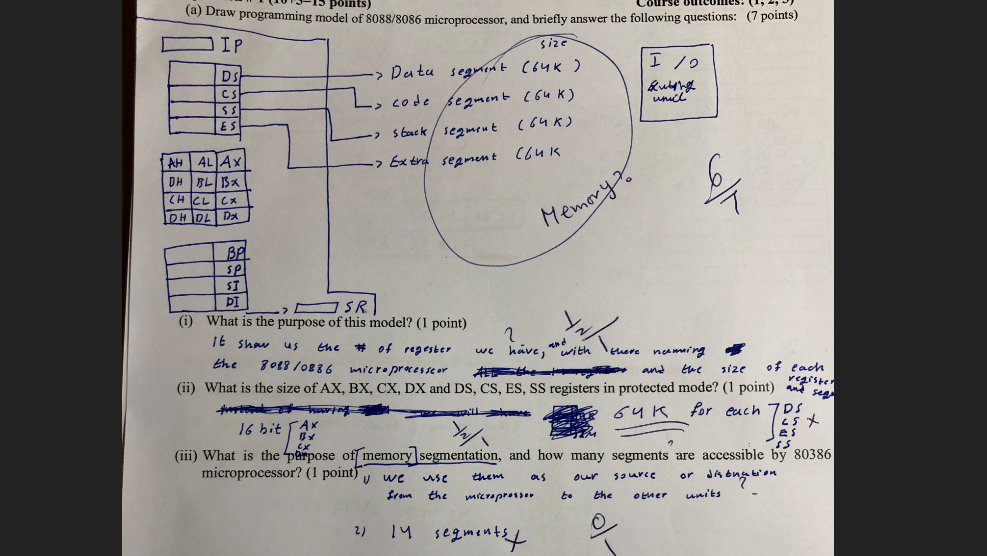 (a) Draw programming model of 8088/8086 microprocessor, and briefly answer the following questions: (7 points)
IP
size
DS → Data segment (64K)
CS → code segment (64K)
SS → stack segment (64K)
ES → Extra segment (64K
I/O
unit
Memory?
6/7
AH AL AX
DH BL BX
CH CL CX
DH DL DX
BP
SP
SI
DI
→ SR
(i) What is the purpose of this model? (1 point)
1/2/1
?
it show us the # of regester we have, and with there namming
the 8088/0886 microprocessor and the size of each
register
and
(ii) What is the size of AX, BX, CX, DX and DS, CS, ES, SS registers in protected mode? (1 point)
64K for each DS
CS
ES
SS
16 bit AX
BX
CX
DX
1/2/1
(iii) What is the purpose of memory segmentation, and how many segments are accessible by 80386
microprocessor? (1 point)
1) we use them as our source or distnation
from the microprossor to the other units ?
2) 14 segments
0/1